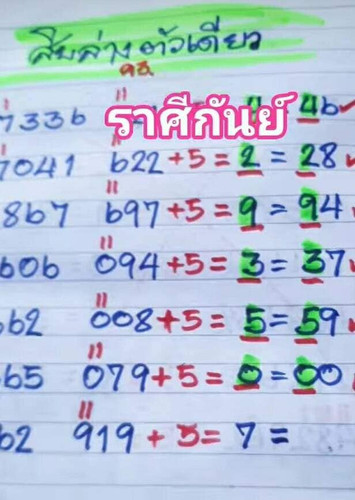 สิบล่างตัวเดียว
ราศีกันย์
7336 = 46
7041 622 +5 = 2 = 28
867 697 +5 = 9 = 94
606 094 +5 = 3 = 37
62 008 +5 = 5 = 59
65 079 +5 = 0 = 00
62 919 + 5 = 7 =